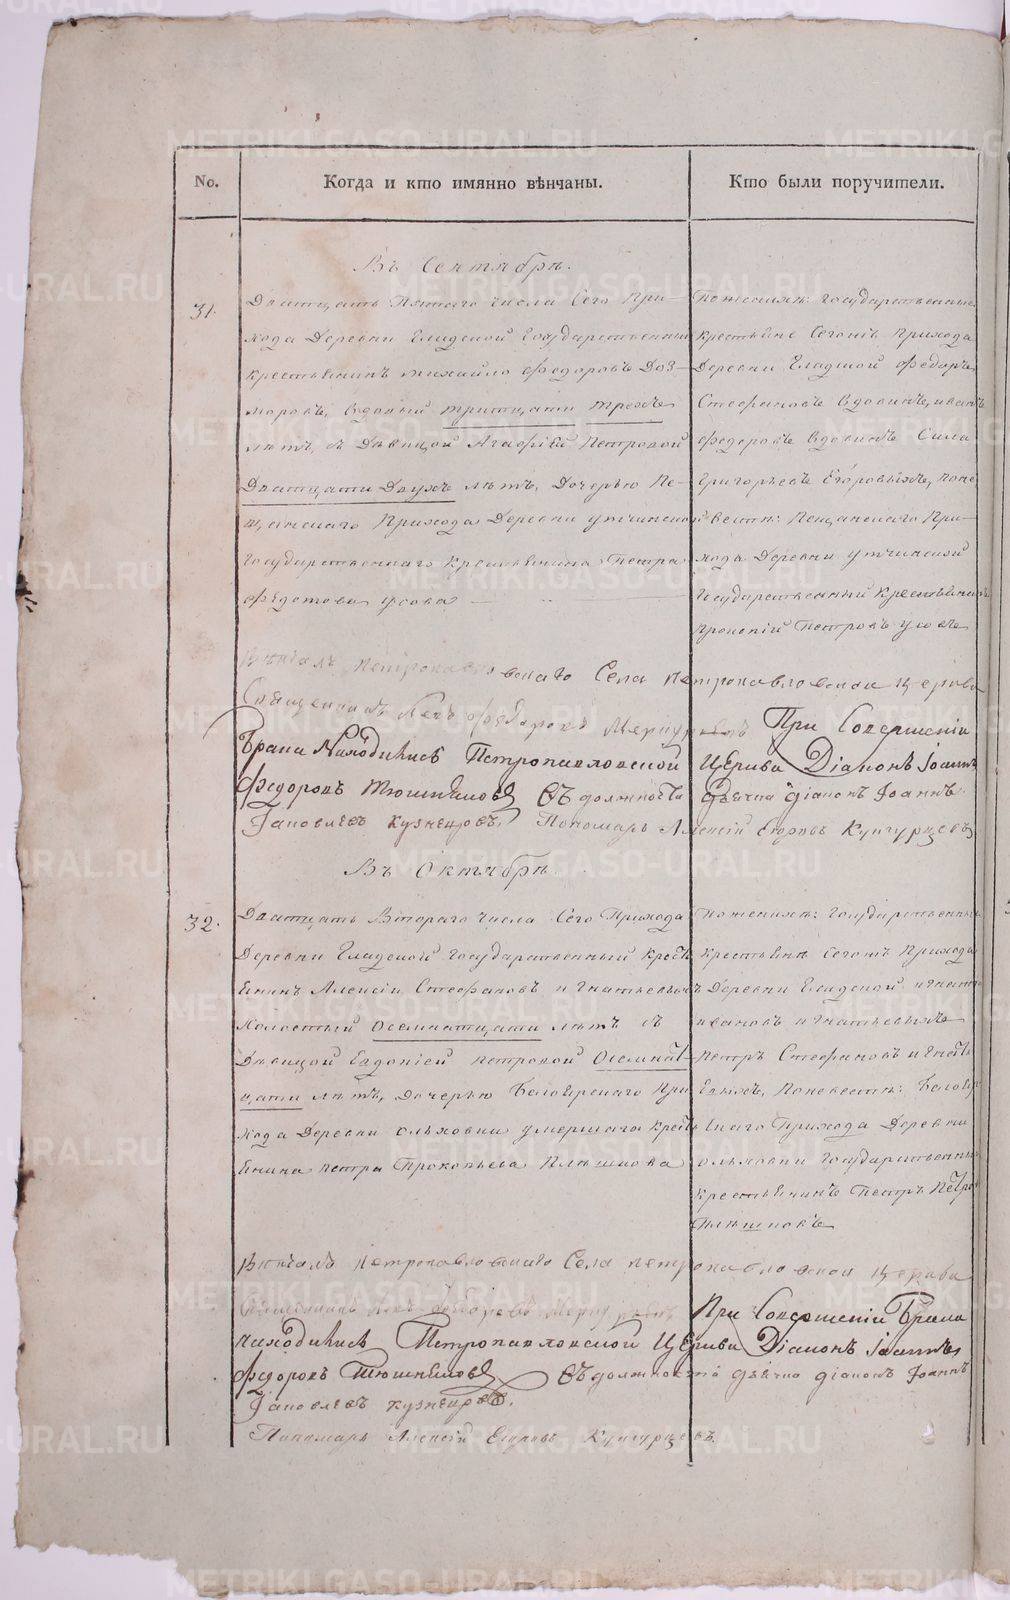 No.
Когда и кто имянно вѣнчаны.
Кто были поручители.
Въ Сентябрѣ.
31.
Дватцать Пятаго числа Сего При-
хода Деревни Гладской Государственный
крестьянинъ михайло Федоровъ Доз-
моровъ, вдовый тритцати трехъ
лѣтъ, съ Дѣвицой Агафіей Петровой
Дватцати Двухъ лѣтъ, Дочерью Пе-
щанскаго Прихода Деревни
Государственнаго Крестьянина Петра
Федотова Усова
По женихѣ: Государственные
крестьяне Сегожъ Прихода
Деревни Гладкой Федоръ
Стефановъ Вдовинъ, иванъ
Федоровъ Вдовинъ Сила
Григорьевъ Егоровыхъ, по не-
вестѣ: Пещанскаго При-
хода Деревни
Государственный Крестьянинъ
Петровъ Усовъ
Вѣнчалъ Петропавловскаго Села петропавловской церкви
Священникъ Левъ Федоровъ При Совершеніи
Брака Находились Петропавловской Церкви Діаконъ Іоаннъ
Федоровъ Въ должности Дьячка діаконъ Іоаннъ
Іаковлевъ кузнецовъ, Пономарь Алексій Егоровъ Кунгурцевъ
Въ Октябрѣ.
32.
Дватцать Втораго числа Сего Прихода
Деревни Гладской государственный Кресть-
янинъ Алексіи Стефановъ игнатьевыхъ
Холостый Осемнатцати лѣтъ съ
Дѣвицой Евдокіей петровой Осемнат-
цати лѣтъ, Дочерью Белоярскаго При-
хода Деревни ольховки умершаго крест-
янина петра Прокопьева Плѣшкова
По женихѣ: Государственный
крестьяне Сегожъ Прихода
Деревни Гладской игнатъ
ивановъ игнатьевыхъ
Петръ Стефановъ игнать-
евыхъ, По невестѣ: Белояр-
скаго Прихода Деревни
ольховки Государственный
крестьянинъ Петръ Петровъ
Плѣшковъ
Вѣнчалъ Петропавловскаго Села петропавловской церкви
Священникъ Левъ Федоровъ При Совершеніи Брака
находились Петропавловской Церкви Діаконъ Іоаннъ
Федоровъ Въ должности дьячка діаконъ Іоаннъ
Іаковлевъ кузнецовъ.
Пономарь Алексій Егоровъ Кунгурцевъ
METRIKI.GASO-URAL.RU